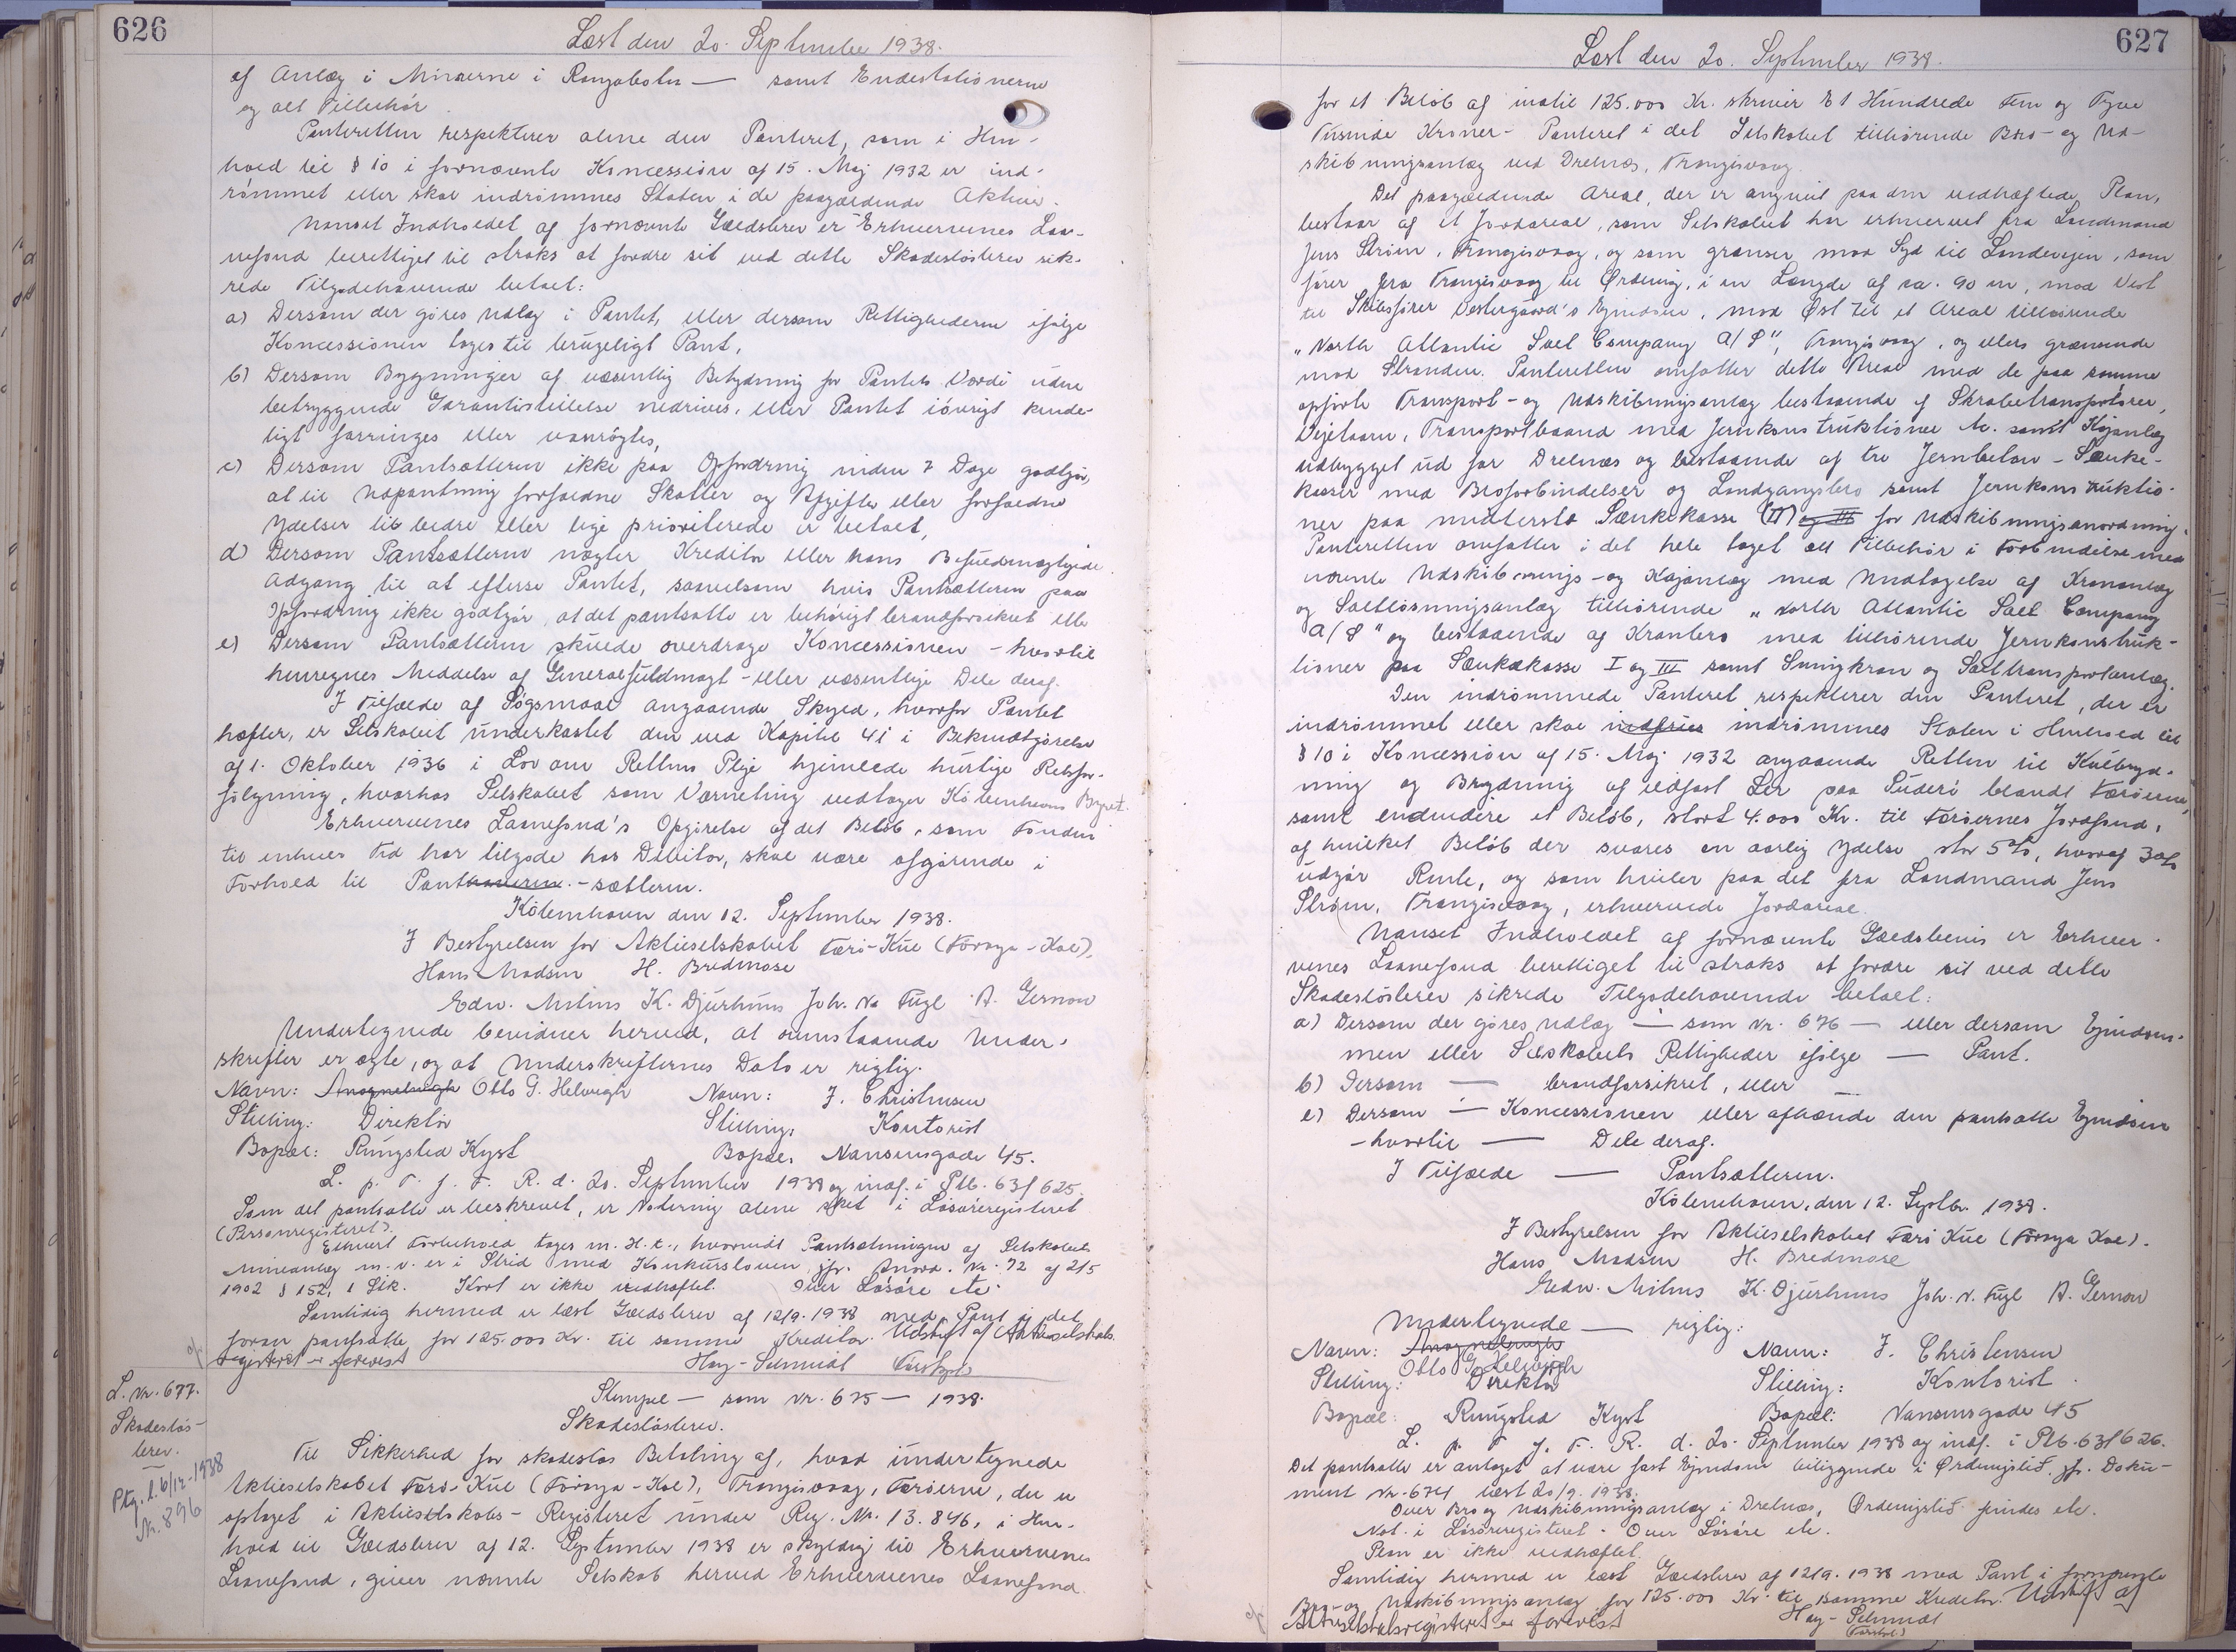 626
Læst den 20. September 1938.
af Anlæg i Minerne i Rangabotn — samt Endestationerne
og alt Tilbehør.
Panteretten respekterer alene den Panteret, som i Hen-
hold til § 10 i fornævnte Koncession af 15. Maj 1932 er ind-
rømmet eller skal indrømmes Staten i de paagældende Aktiver.
Uanset Indholdet af fornævnte Gældsbrev er Erhvervenes Laa-
nefond berettiget til straks at fordre sit ved dette Skadesløsbrev sik-
rede Tilgodehavende betalt:
a) Dersom der gøres Udlæg i Pantet, eller dersom Rettighederne ifølge
Koncessionen tages til brugeligt Pant,
b) Dersom Bygninger af væsentlig Betydning for Pantets Værdi uden
betryggende Garantistillelse nedrives, eller Pantet iøvrigt kende-
ligt forringes eller vanrøgtes,
c) Dersom Pantsætteren ikke paa Opfordring inden 7 Dage godtgør,
at til Udpantning forfaldne Skatter og Afgifter eller forfaldne
Ydelser til bedre eller lige prioriterede er betalt,
d) Dersom Pantsætteren nægter Kreditor eller hans Befuldmægtigede
Adgang til at efterse Pantet, saavelsom hvis Pantsætteren paa
Opfordring ikke godtgør, at det pantsatte er behørigt brandforsikret eller
e) Dersom Pantsætteren skulde overdrage Koncessionen – hvortil
henregnes Meddelse af Generalfuldmagt – eller væsentlige Dele deraf.
I Tilfælde af Søgsmaal angaaende Skyld, hvorfor Pantet
hæfter, er Selskabet underkastet den ved Kapitel 41 i Bekendtgørelse
af 1. Oktober 1936 i Lov om Rettens Pleje hjemlede hurtige Retsfor-
følgning, hvorhos Selskabet som Værneting vedtager Københavns Byret.
Erhvervenes Laanefond's Opgørelse af det Beløb, som Fonden
til enhver Tid har tilgode hos Debitor, skal være afgørende i
Forhold til Panthaveren.-sætteren.
København den 12. September 1938.
I Bestyrelsen for Aktieselskabet Færø-Kul (Föroya-Kol).
Hans Madsen H. Bredmose
Edw. Mitens K. Djurhuus Joh. v. Fugl A. Gernow
Undertegnede bevidner herved, at ovenstaaende Under-
skrifter er ægte, og at Underskrifternes Dato er rigtig.
Navn: Otto G. Helweigh Navn: J. Christensen
Stilling: Direktør Stilling: Kontorist
Bopæl: Rungsted Kyst Bopæl: Nansensgade 45.
L. p. T. f. F. R. d. 20. September 1938 og indf. i Ptb. 63 f 625.
Som det pantsatte er beskrevet, er Notering alene sket i Løsøreregisteret
(Personregisteret).
Ethvert Forbehold tages m. H. t., hvorvidt Pantsætningen af Selskabets
Mineanlæg m. v. er i Strid med Konkursloven, jfr. Anord. Nr. 72 af 21/5
1902 § 152, 1 Stk. Kort er ikke vedhæftet. Over Løsøre etc.
Samtidig hermed er læst Gældsbrev af 12/9. 1938 med Pant i det
foran pantsatte for 125.000 Kr. til samme Kreditor. Udskrift af Aktieselskabs-
registeret er forevist Høy-Schmidt
L. Nr. 677.
Skadesløs-
brev.
Ptg. l. 6/12-1938
Nr. 896
Stempel — som Nr. 675 — 1938.
Skadesløsbrev.
Til Sikkerhed for skadesløs Betaling af, hvad undertegnede
Aktieselskabet Færø-Kul (Föroya-Kol), Trangisvaag, Færøerne, der er
optaget i Aktieselskabs-Registeret under Reg. Nr. 13.846, i Hen-
hold til Gældsbrev af 12. September 1938 er skyldig til Erhvervenes
Laanefond, giver nævnte Selskab herved Erhvervenes Laanefond
627
Læst den 20. September 1938.
for et Beløb af indtil 125.000 Kr. skriver Et Hundrede Fem og Tyve
Tusinde Kroner – Panteret i det Selskabet tilhørende Bro- og Ud-
skibningsanlæg ved Drelnæs, Trangisvaag.
Det paagældende Areal, der er angivet paa den vedhæftede Plan,
bestaar af et Jordareal, som Selskabet har erhvervet fra Landmand
Jens Strøm, Trangisvaag, og som grænser mod Syd til Landevejen, som
fører fra Trangisvaag til Ørdevig, i en Længde af ca. 90 m, mod Vest
til Skibsfører Vestergaard's Ejendom, mod Øst til et Areal tilhørende
„North Atlantic Salt Company A/S", Trangisvaag, og ellers grænsende
mod Stranden. Panteretten omfatter dette Areal med de paa samme
opførte Transport- og Udskibningsanlæg bestaaende af Skrabetransportører,
Vejetaarn, Transportbaand med Jernkonstruktioner etc. samt Kajanlæg
udbygget ud for Drelnæs og bestaaende af tre Jernbeton-Sænke-
kasser med Broforbindelser og Landgangsbro samt Jernkonstruktio-
ner paa midterste Sænkekasse (II) og III for Udskibningsanordning.
Panteretten omfatter i det hele taget alt Tilbehør i Forbindelse med
nævnte Udskibnings- og Kajanlæg med Undtagelse af Krananlæg
og Saltlosningsanlæg tilhørende „North Atlantic Salt Company
A/S" og bestaaende af Kranbro med tilhørende Jernkonstruk-
tioner paa Sænkekasse I og III samt Svingkran og Salttransportanlæg.
Den indrømmede Panteret respekterer den Panteret, der er
indrømmet eller skal indfries indrømmes Staten i Henhold til
§ 10 i Koncession af 15. Maj 1932 angaaende Retten til Kulbryd-
ning og Brydning af ildfast Ler paa Suderø blandt Færøerne,
samt endvidere et Beløb, stort 4.000 Kr. til Færøernes Jordfond,
af hvilket Beløb der svares en aarlig Ydelse stor 5%, hvoraf 3%
udgør Rente, og som hviler paa det fra Landmand Jens
Strøm, Trangisvaag, erhvervede Jordareal.
Uanset Indholdet af fornævnte Gældsbevis er Erhver-
venes Laanefond berettiget til straks at fordre sit ved dette
Skadesløsbrev sikrede Tilgodehavende betalt:
a) Dersom der gøres Udlæg — som Nr. 676 — eller dersom Ejendom-
men eller Selskabets Rettigheder ifølge — Pant.
b) Dersom — brandforsikret, eller
e) Dersom — Koncessionen eller afhænde den pantsatte Ejendom
– hvortil — Dele deraf.
I Tilfælde — Pantsætteren.
København, den 12. Septbr. 1938.
I Bestyrelsen for Aktieselskabet Færø Kul (Föroya Kol).
Hans Madsen H. Bredmose
Edw. Mitens K. Djurhuus Joh. v. Fugl A. Gernow
Undertegnede — rigtig:
Navn: Otto G. Helweigh Navn: J. Christensen
Stilling: Direktør Stilling: Kontorist.
Bopæl: Rungsted Kyst Bopæl: Nansensgade 45
L. p. T. f. F. R. d. 20. September 1938 og indf. i Ptb. 63 f 626.
Det pantsatte er antaget at være fast Ejendom beliggende i Ørdevigslid. jfr. Doku-
ment Nr. 674 læst 20/9. 1938.
Over Bro og Udskibningsanlæg i Drelnæs, Ørdevigslid findes etc.
Not. i Løsøreregisteret. Over Løsøre etc.
Plan er ikke vedhæftet.
Samtidig hermed er læst Gældsbrev af 12/9. 1938 med Pant i fornævnte
Bro- og Udskibningsanlæg for 125.000 Kr. til samme Kreditor. Udskrift af
Aktieselskabsregisteret er forevist Høy-Schmidt